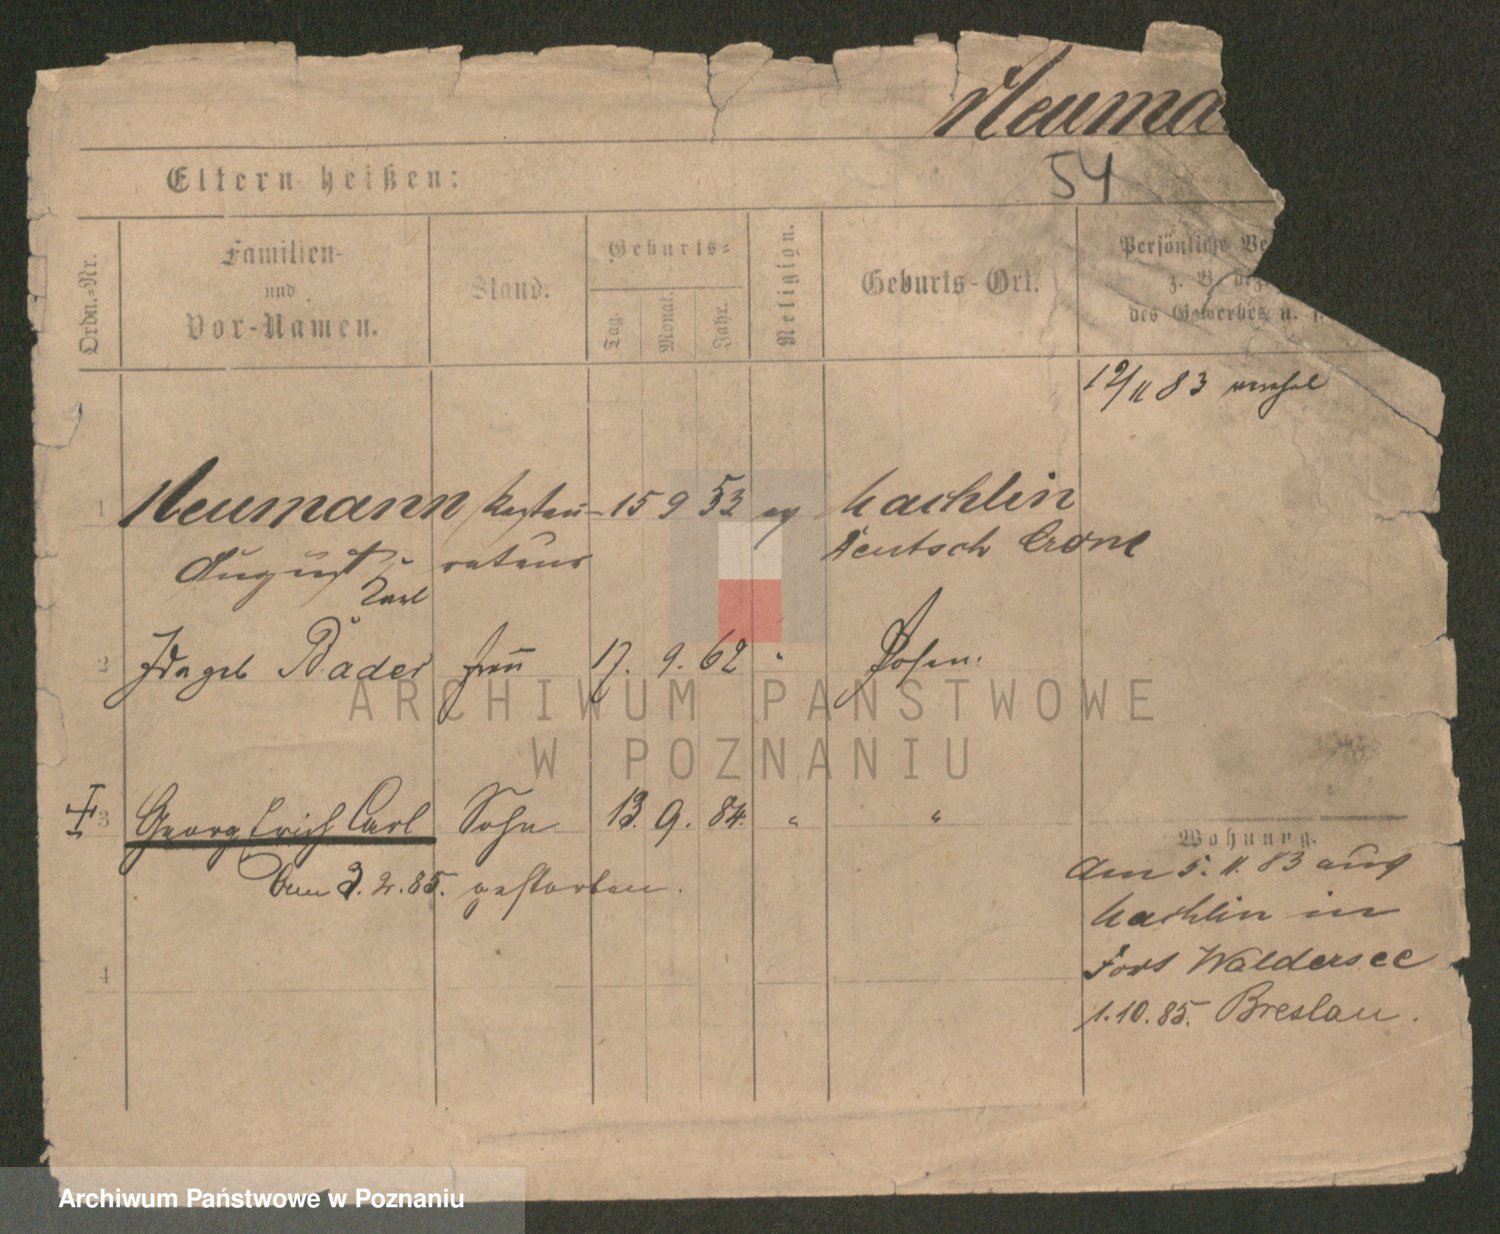 Neuma
54
Eltern heißen:
Ordn.-Nr.
Familien-
und
Vor-Namen.
Stand.
Geburts-
Tag.
Monat.
Jahr.
Religion.
Geburts-Ort.
Persönliche Be
z. B. bez
des Gewerbes u. s.
12/11 83
1 Neumann Restau- 15 9 53 ev Machlin
August rateur Deutsch Crone
Karl
2 Ida geb Bader Frau 17. 9. 62 " Posen.
3 Georg Erich Carl Sohn 13. 9. 84. " "
Am 3. 2. 85. gestorben.
4
Wohnung.
Am 5. 11. 83 aus
Machlin in
Fort Waldersee
1. 10. 85. Breslau.
ARCHIWUM PAŃSTWOWE
W POZNANIU
Archiwum Państwowe w Poznaniu